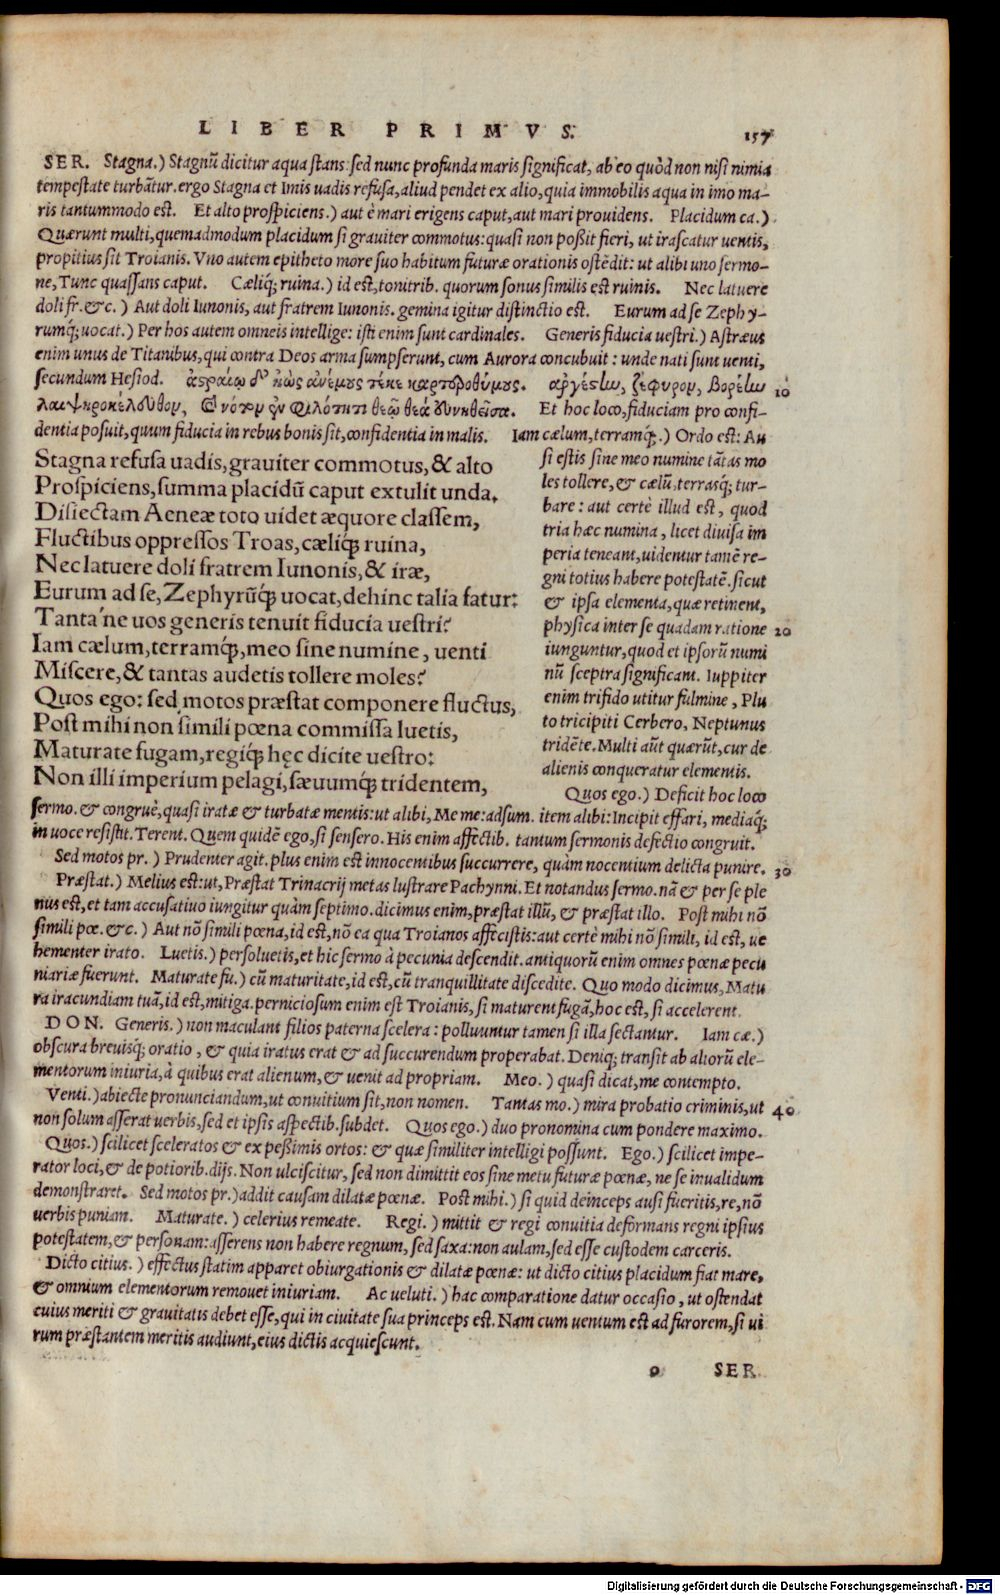 LIBER PRIMVS. 157
SER. Stagna.) Stagnū dicitur aqua stans: sed nunc profunda maris significat, ab eo quòd non nisi nimia
tempestate turbātur. ergo Stagna et Imis uadis refusa, aliud pendet ex alio, quia immobilis aqua in imo ma-
ris tantummodo est. Et alto prospiciens.) aut è mari erigens caput, aut mari prouidens. Placidum ca.)
Quærunt multi, quemadmodum placidum si grauiter commotus: quasi non poßit fieri, ut irascatur uentis,
propitius sit Troianis. Vno autem epitheto more suo habitum futuræ orationis ostēdit: ut alibi uno sermo-
ne, Tunc quassans caput. Cæliq; ruina.) id est, tonitrib. quorum sonus similis est ruinis. Nec latuere
doli fr. &c.) Aut doli Iunonis, aut fratrem Iunonis. gemina igitur distinctio est. Eurum ad se Zephy-
rumq; uocat.) Per hos autem omneis intellige: isti enim sunt cardinales. Generis fiducia uestri.) Astræus
enim unus de Titanibus, qui contra Deos arma sumpserunt, cum Aurora concubuit: unde nati sunt uenti,
secundum Hesiod. ἀστραίῳ δ' ἠὼς ἀνέμους τέκε καρτεροθύμους. ἀργέστω, ζέφυρον, βορέλω 10
λαιψηροκέλουθον, Καὶ νότον ἐν φιλότητι θεῷ θεά συνηθεῖσα. Et hoc loco, fiduciam pro confi-
dentia posuit, quum fiducia in rebus bonis sit, confidentia in malis. Iam cælum, terramq;.) Ordo est: Au
Stagna refusa uadis, grauiter commotus, & alto
Prospiciens, summa placidū caput extulit unda.
Disiectam Aeneæ toto uidet æquore classem,
Fluctibus oppressos Troas, cæliq; ruina,
Nec latuere doli fratrem Iunonis, & iræ,
Eurum ad se, Zephyrūq; uocat, dehinc talia fatur:
Tanta'ne uos generis tenuit fiducia uestri?
Iam cælum, terramq;, meo sine numine, uenti
Miscere, & tantas audetis tollere moles?
Quos ego: sed motos præstat componere fluctus,
Post mihi non simili pœna commissa luetis,
Maturate fugam, regiq; hęc dicite uestro:
Non illi imperium pelagi, sæuumq; tridentem,
si estis sine meo numine tātas mo
les tollere, & cælū, terrasq; tur-
bare: aut certè illud est, quod
tria hæc numina, licet diuisa im
peria teneant, uidentur tamē re-
gni totius habere potestatē. sicut
& ipsa elementa, quæ retinent,
physica inter se quadam ratione 20
iunguntur, quod et ipsorū numi
nū sceptra significant. Iuppiter
enim trifido utitur fulmine, Plu
to tricipiti Cerbero, Neptunus
tridēte. Multi aūt quærūt, cur de
alienis conqueratur elementis.
Quos ego.) Deficit hoc loco
sermo. & congruè, quasi iratæ & turbatæ mentis: ut alibi, Me me: adsum. item alibi: Incipit effari, mediaq;
in uoce resistit. Terent. Quem quidē ego, si sensero. His enim affectib. tantum sermonis defectio congruit.
Sed motos pr.) Prudenter agit. plus enim est innocentibus succurrere, quàm nocentium delicta punire. 30
Præstat.) Melius est: ut, Præstat Trinacrij metas lustrare Pachynni. Et notandus sermo. nā & per se ple
nus est, et tam accusatiuo iungitur quàm septimo. dicimus enim, præstat illū, & præstat illo. Post mihi nō
simili pœ. &c.) Aut nō simili pœna, id est, nō ea qua Troianos affecistis: aut certè mihi nō simili, id est, ue
hementer irato. Luetis.) persoluetis, et hic sermo à pecunia descendit. antiquorū enim omnes pœnæ pecu
niariæ fuerunt. Maturate fu.) cū maturitate, id est, cū tranquillitate discedite. Quo modo dicimus, Matu
ra iracundiam tuā, id est, mitiga. perniciosum enim est Troianis, si maturent fugā, hoc est, si accelerent.
DON. Generis.) non maculant filios paterna scelera: polluuntur tamen si illa sectantur. Iam cæ.)
obscura breuisq; oratio, & quia iratus erat & ad succurendum properabat. Deniq; transit ab aliorū ele-
mentorum iniuria, à quibus erat alienum, & uenit ad propriam. Meo.) quasi dicat, me contempto.
Venti.) abiecte pronunciandum, ut conuitium sit, non nomen. Tantas mo.) mira probatio criminis, ut 40
non solum asserat uerbis, sed et ipsis aspectib. subdet. Quos ego.) duo pronomina cum pondere maximo.
Quos.) scilicet sceleratos & ex peßimis ortos: & quæ similiter intelligi possunt. Ego.) scilicet impe-
rator loci, & de potiorib. dijs. Non ulciscitur, sed non dimittit eos sine metu futuræ pœnæ, ne se inualidum
demonstraret. Sed motos pr.) addit causam dilatæ pœnæ. Post mihi.) si quid deinceps ausi fueritis, re, nō
uerbis puniam. Maturate.) celerius remeate. Regi.) mittit & regi conuitia deformans regni ipsius
potestatem, & personam: asserens non habere regnum, sed saxa: non aulam, sed esse custodem carceris.
Dicto citius.) effectus statim apparet obiurgationis & dilatæ pœnæ: ut dicto citius placidum fiat mare,
& omnium elementorum remouet iniuriam. Ac ueluti.) hac comparatione datur occasio, ut ostendat
cuius meriti & grauitatis debet esse, qui in ciuitate sua princeps est. Nam cum uentum est ad furorem, si ui
rum præstantem meritis audiunt, eius dictis acquiescunt.
o SER.
Digitalisierung gefördert durch die Deutsche Forschungsgemeinschaft - DFG